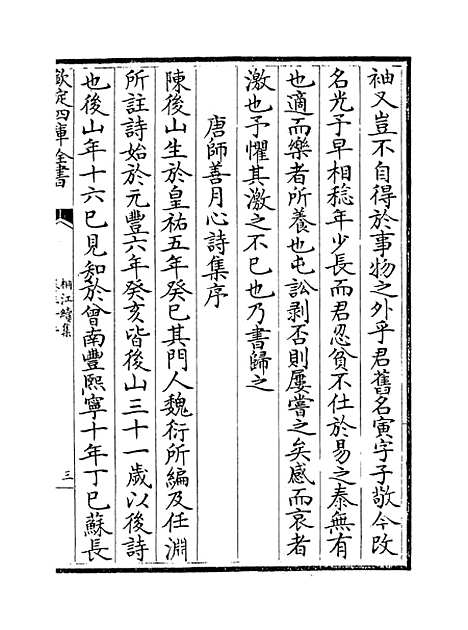 袖又豈不自得於事物之外乎君舊名寅字子敬今改
名光子早相稔年少長而君忍貧不仕於易之泰無有
也適而樂者所養也屯訟剥否則屢嘗之矣感而哀者
激也予懼其激之不已也乃書歸之
唐師善月心詩集序
陳後山生於皇祐五年癸巳其門人魏衍所編及任淵
所註詩始於元豐六年癸亥皆後山三十一歲以後詩
也後山年十六已見知於曾南豐熙寧十年丁巳蘇長
欽定四庫全書
桐江續集
三